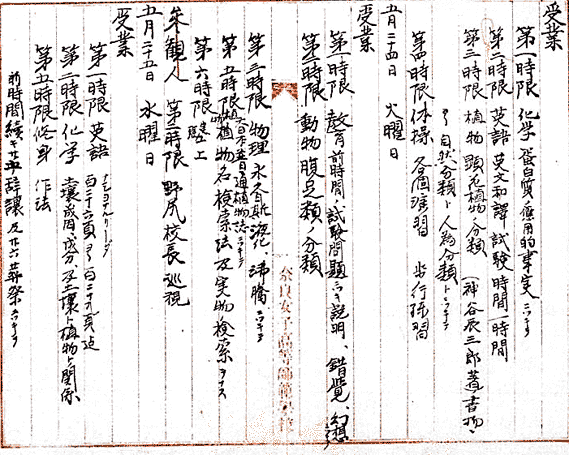 受業
第一時限 化学 蛋白質ノ應用的事実ニツキテ
第二時限 英語 英文和譯、試験 時間一時間
第三時限 植物 顕花植物ノ分類 (神谷辰三郎著書物、
自然分類ト人為分類トニツキテ
第四時限 体操 各個演習 歩行練習
五月二十四日 火曜日
受業
第一時限 教育 前時間ノ試験問題ニツキ説明、錯覚、幻想
第二時限 動物 腹足類ノ分類
第三時限 物理 氷ノ融解、沸騰ニツキテ
第五時限 植物 大日本普通植物誌ニツキテ
植物名検索法及実物検索ヲナス
第六時限 同上
参観人 第二時限 野尻校長巡視
五月二十五日 水曜日
受業
第一時限 英語 百十六頁ヨリ百二十頁迄
第二時限 化学 土壌成因、成分、及土壌ト植物ト関係
第五時限 修身 作法
前時間続キ 辞譲及 葬祭ニツキテ
奈良女子高等師範学校